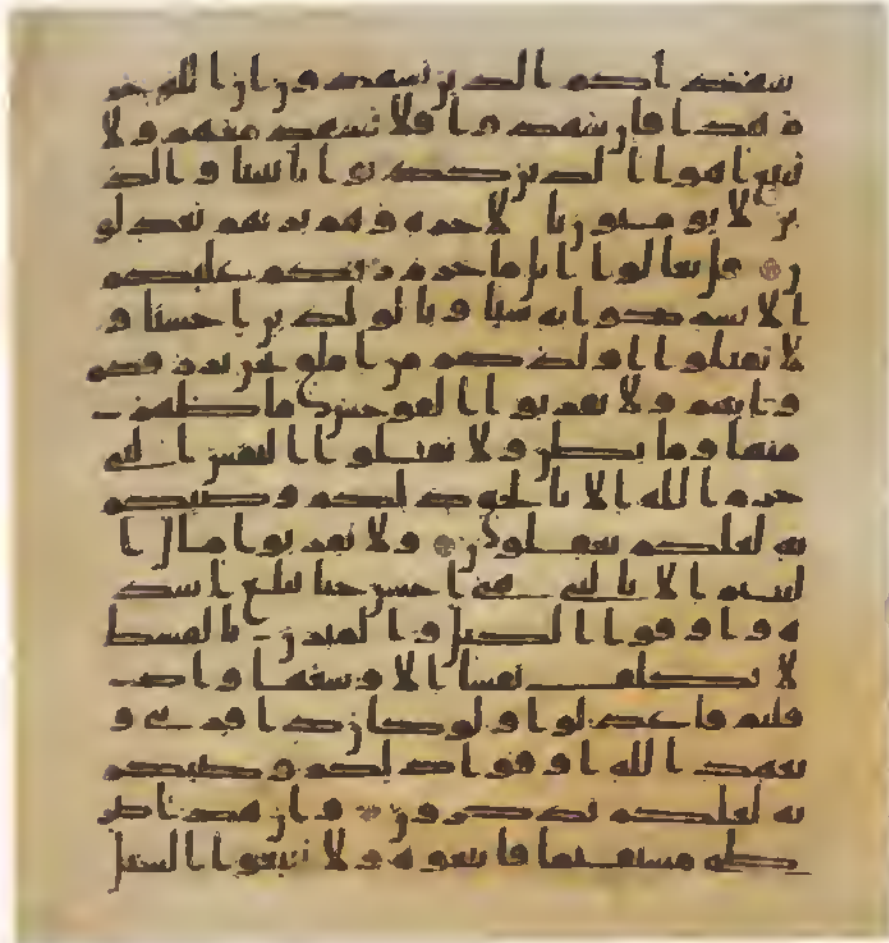 شهداكم الذين يشهدون ان الله حر
م هذا فان شهدوا فلا تشهد معهم ولا
تتبع اهوا الذين كذبوا باىتنا والذ
ين لا يومنون بالاخرة وهم بربهم يعدلو
ن قل تعالوا اتل ما حرم ربكم عليكم
الا تشركوا به شيا وبالولدين احسنا و
لا تقتلوا اولدكم من املق نحن نرزقكم
واياهم ولا تقربوا الفوحش ما ظهر
منها وما بطن ولا تقتلوا النفس التي
حرم الله الا بالحق ذلكم وصيكم
به لعلكم تعقلون ولا تقربوا مال ا
ليتيم الا بالتي هي احسن حتى يبلغ اشد
ه واوفوا الكيل والميزن بالقسط
لا نكلف نفسا الا وسعها واذا
قلتم فاعدلوا ولو كان ذا قربى و
بعهد الله اوفوا ذلكم وصيكم
به لعلكم تذكرون وان هذا صر
طي مستقيما فاتبعوه ولا تتبعوا السبل